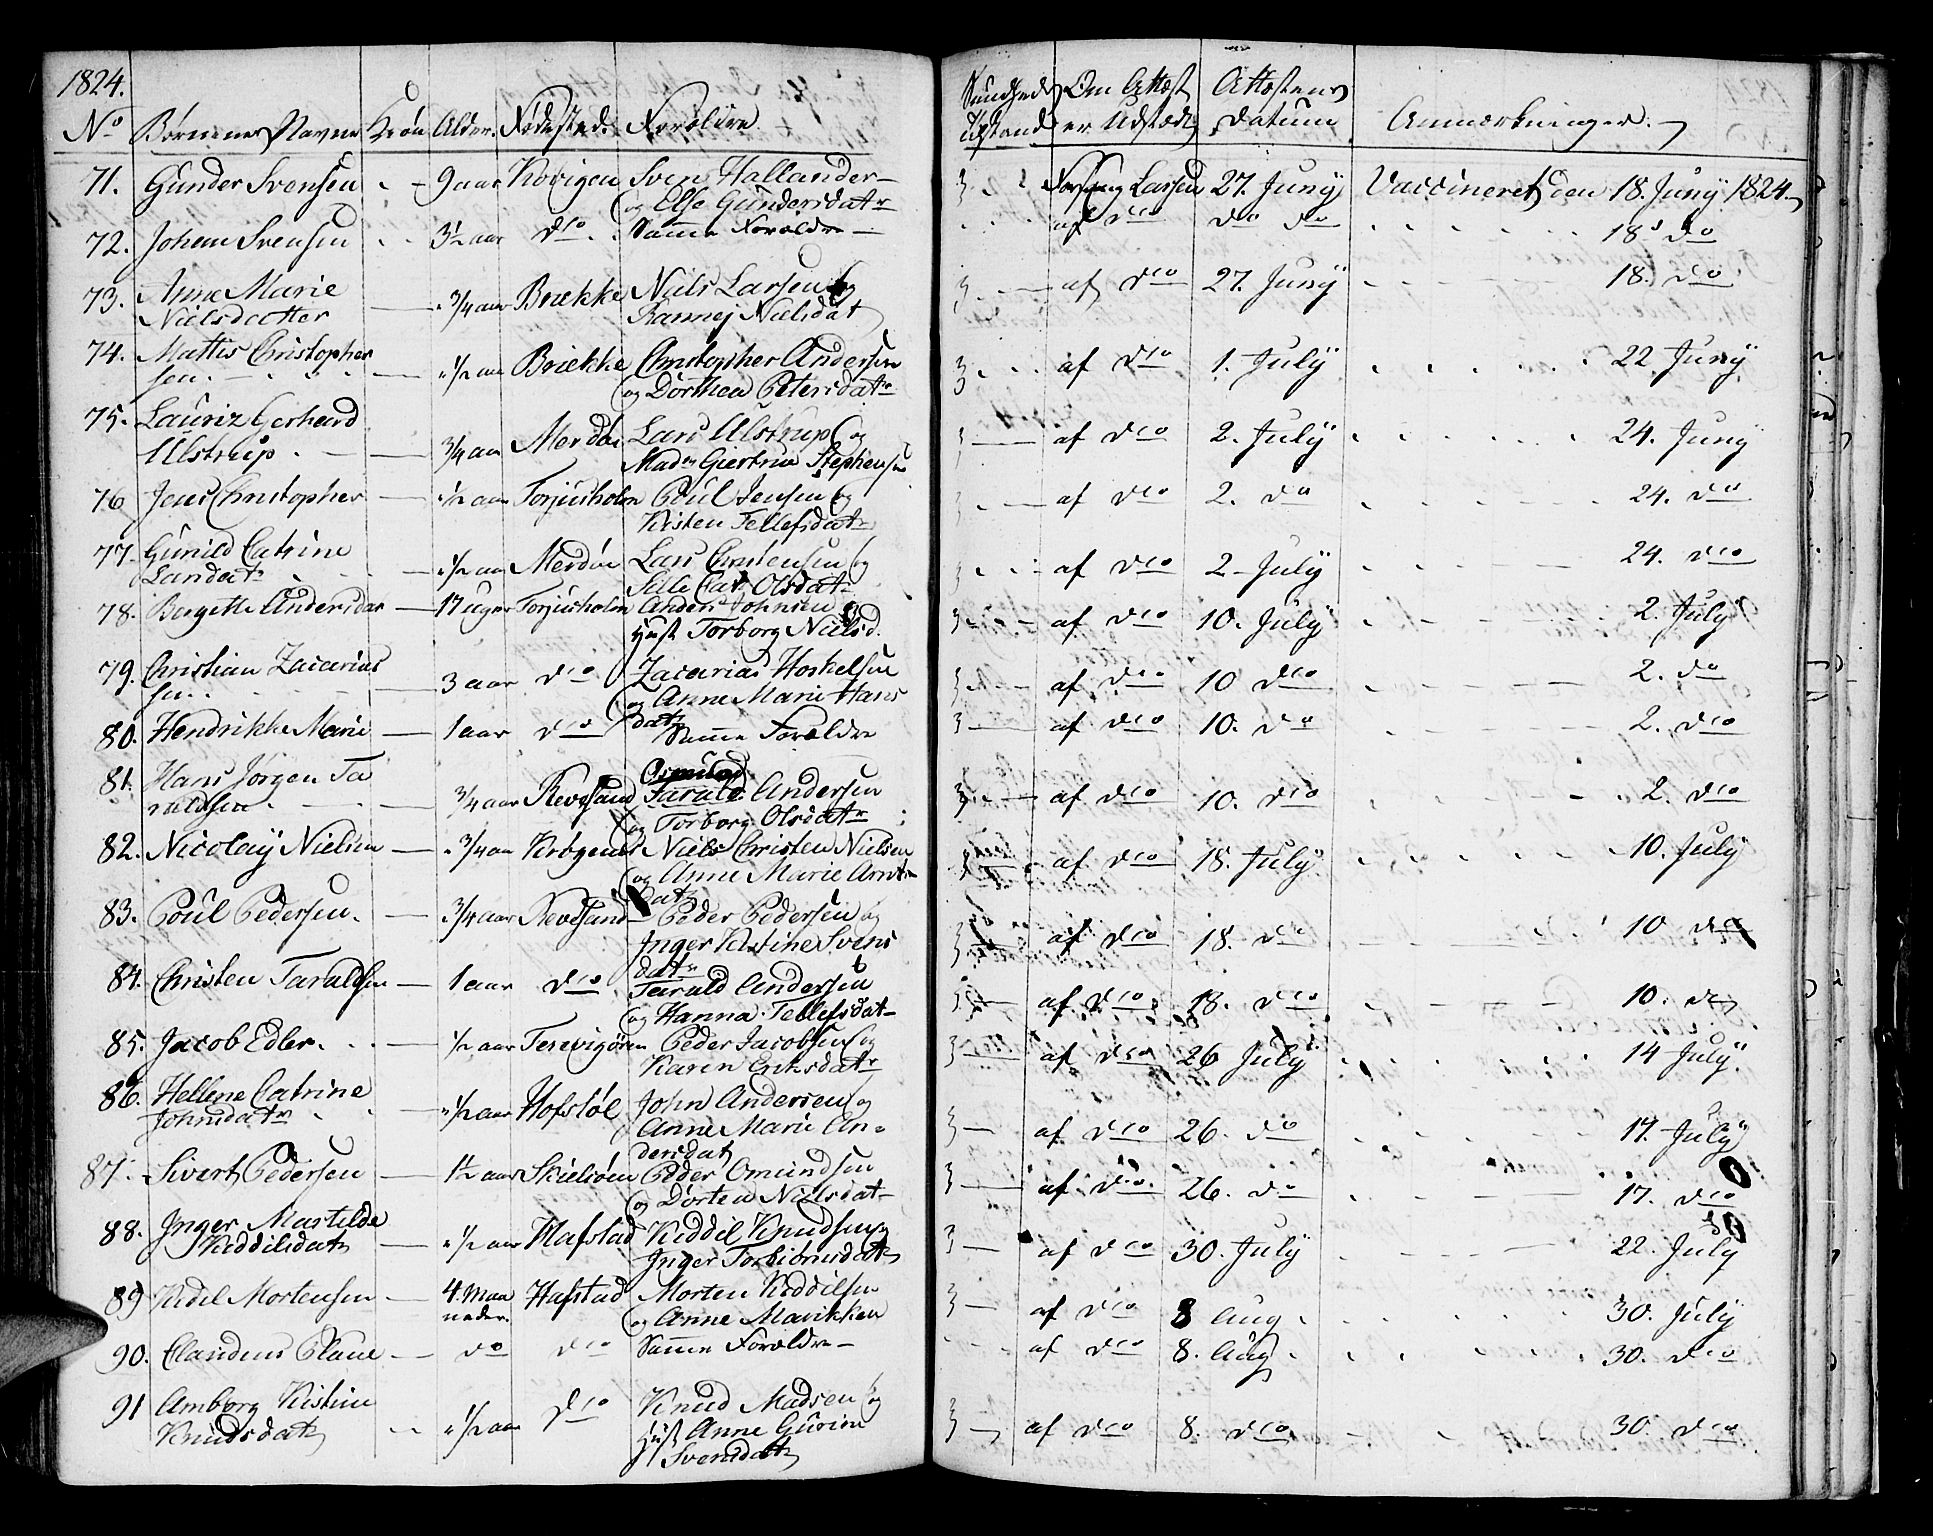 1824.
No Börnenes Navne Kiön Alder. Födested Forældre. Sundheds Tilstand Om Attest er Udstædt Attestens Datum Anmærkninger.
71. Gunder Svensen 9 aar Kovigen Sven Hallander og Else Gundersdatr 27. Juny Vaccineret den 18. Juny 1824.
72. Johan Svensen 3½ aar do Samme Forældre af dito do do 18 do
73. Anne Marie Nielsdatter ¾ aar Brække Niels Larsen og Rannej Nielsdat af dito 27. Juny 18. do
74. Mattis Christophersen ½ aar Brække Christopher Andersen og Dorthea Petersdatr af dito 1. July 22 Juny
75. Lauriz Gerhard Ulstrup ¾ aar Merdöe Lars Ulstrup og Madm Giertrue Stephensen af dito 2. July 24. Juny
76 Jens Christopher ½ aar Torjusholm Poul Jensen og Kisten Tellefsdatr af dito 2. do 24. do
77. Gunild Catrine Larsdatr ½ aar Merdöe Lars Christensen og Sille Cat. Olsdatr af dito 2 July 24. dito
78. Bergette Andersdat 17 uger Torjusholm Anders Johnsen og Hust Torborg Nielsd. af dito 10. July 2. July
79. Christian Zacariassen 3 aar dito Zacarias Hoskelsen og Anne Marie Hansdatr af dito 10 dito 2. do
80. Hendrikke Marie 1 aar dito Samme Forældre af dito 10. do 2. dito
81. Hans Jörgen Taraldsen ¾ aar Revesand Tarald Andersen og Torborg Olsdatr af dito 10. dito 2. dito
82. Nicolay Nielsen ¾ aar Niels Christen Nielsen og Anne Marie Arntsdat af dito 18. July 10. July
83. Poul Pedersen ¾ aar Revesand Peder Pedersen og Inger Kirstine Svensdatr af dito 18. do 10 dito
84. Christen Taraldsen 1 aar dito Tarald Andersen og Hanna Tellefsdat af dito 18. dito 10. do
85. Jacob Edler ½ aar Peder Jacobsen og Karen Eriksdatr af dito 26 July 14 July
86. Hellene Catrine Johnsdatr ½ aar Hofstöl John Andersen og Anne Marie Andersdat af dito 26. do 17. July
87. Sivert Pedersen 1½ aar Peder Omundsen og Dorten Nielsdat af dito 26. do 17. dito
88. Inger Mastilde Kiddilsdat ½ aar Hafstad Kiddil Knudsen og Inger Torbiörnsdat af dito 30. July 22. July
89 Kidil Mortensen 4 Maaneder. Hafstad Morten Kiddilsen og Anne Marikken af dito 8 Aug 30. July
90. do dito Samme Forældre af dito 8. Aug 30. dito
91 Amborg Kistine Knudsdat ½ aar dito Knud Madsen og Hust Anne Gurine Svensdat af dito 8. dito 30. dito